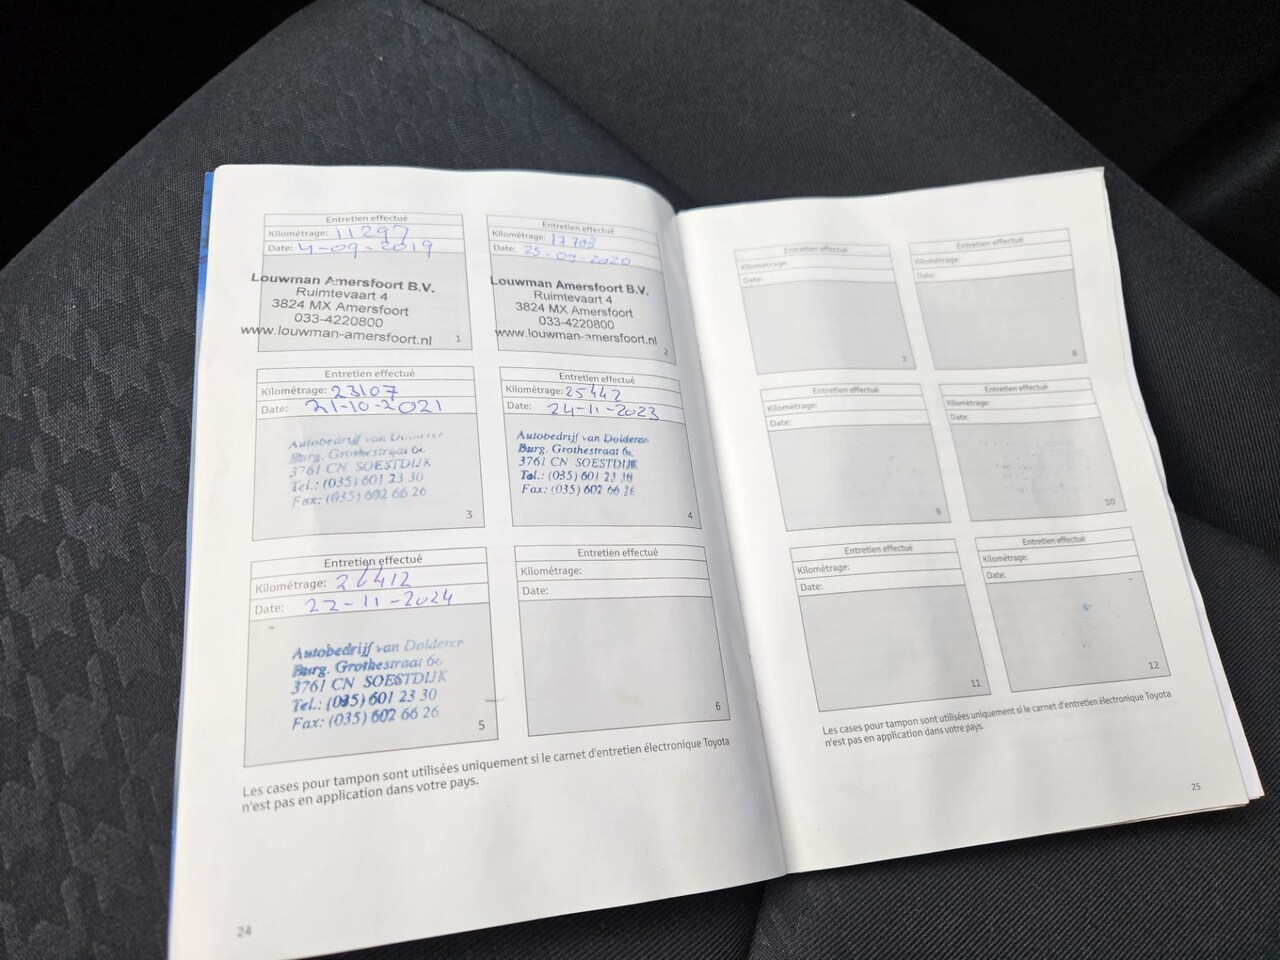 Entretien effectué
Kilométrage: 11297
Date: 4-09-2019
Louwman Amersfoort B.V.
Ruimtevaart 4
3824 MX Amersfoort
033-4220800
www.louwman-amersfoort.nl
1
Entretien effectué
Kilométrage: 17703
Date: 25-09-2020
Louwman Amersfoort B.V.
Ruimtevaart 4
3824 MX Amersfoort
033-4220800
www.louwman-amersfoort.nl
2
Entretien effectué
Kilométrage: 23107
Date: 21-10-2021
Autobedrijf van Dolderen
Burg. Grothestraat
3761 CN SOESTDIJK
Tel.: (035) 601 23 30
Fax: (035) 602 66 26
3
Entretien effectué
Kilométrage: 25442
Date: 24-11-2023
Autobedrijf van Dolderen
Burg. Grothestraat
3761 CN SOESTDIJK
Tel.: (035) 601 23 30
Fax: (035) 602 66 26
4
Entretien effectué
Kilométrage: 26412
Date: 22-11-2024
Autobedrijf van Dolderen
Burg. Grothestraat
3761 CN SOESTDIJK
Tel.: (035) 601 23 30
Fax: (035) 602 66 26
5
Entretien effectué
Kilométrage:
Date:
6
Les cases pour tampon sont utilisées uniquement si le carnet d'entretien électronique Toyota
n'est pas en application dans votre pays.
24
Entretien effectué
Kilométrage:
Date:
7
Entretien effectué
Kilométrage:
Date:
8
Entretien effectué
Kilométrage:
Date:
9
Entretien effectué
Kilométrage:
Date:
10
Entretien effectué
Kilométrage:
Date:
11
Entretien effectué
Kilométrage:
Date:
12
Les cases pour tampon sont utilisées uniquement si le carnet d'entretien électronique Toyota
n'est pas en application dans votre pays.
25